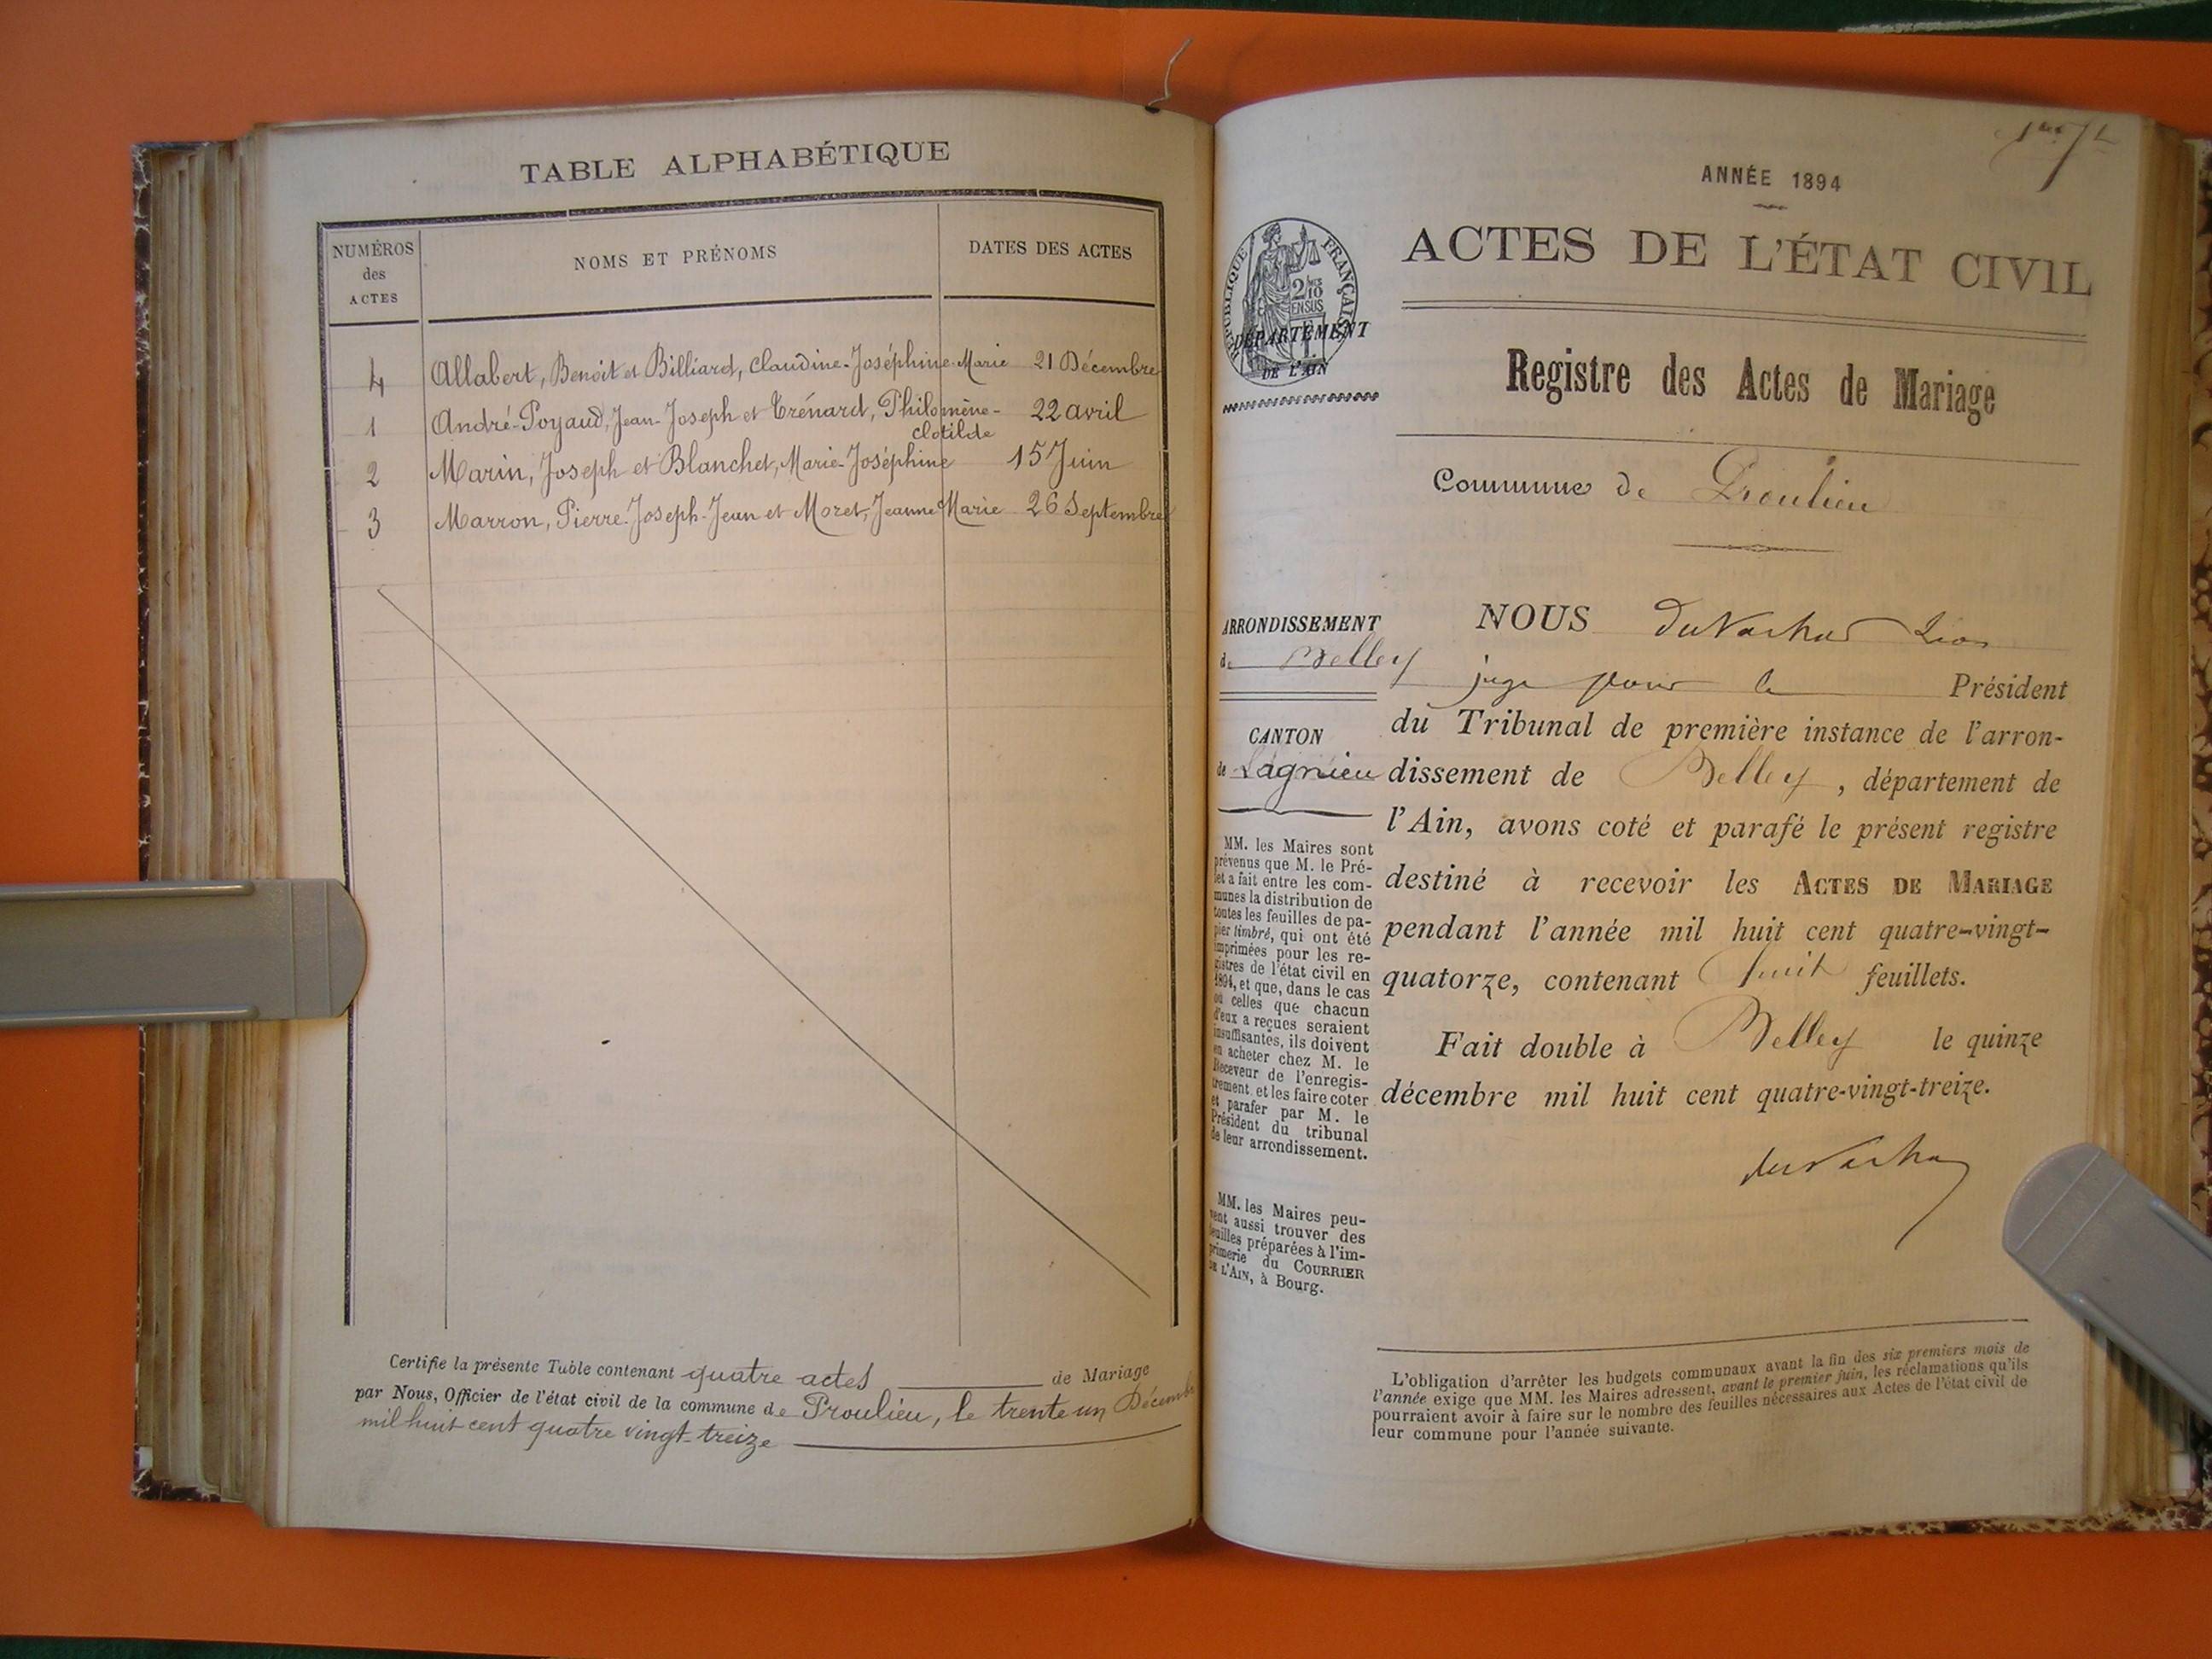 TABLE ALPHABÉTIQUE
NUMÉROS
des
ACTES
NOMS ET PRÉNOMS
DATES DES ACTES
4 Allabert, Benoit et Billiard, Claudine-Joséphine-Marie 21 Décembre
1 André-Poyaud, Jean-Joseph et Trénard, Philomène- 22 avril
clotilde
2 Marin, Joseph et Blanchet, Marie-Joséphine 15 Juin
3 Marron, Pierre-Joseph-Jean et Moret, Jeanne Marie 26 Septembre
Certifie la présente Table contenant quatre actes de Mariage
par Nous, Officier de l'état civil de la commune de Proulieu, le trente un Décembre
mil huit cent quatre vingt-treize
ANNÉE 1894
ACTES DE L'ÉTAT CIVIL
RÉPUBLIQUE FRANÇAISE
2/10
EN SUS
DÉPARTEMENT
DE L'AIN
Registre des Actes de Mariage
Commune de Proulieu
ARRONDISSEMENT
de Belley
CANTON
de Lagnieu
MM. les Maires sont
prévenus que M. le Pré-
fet a fait entre les com-
munes la distribution de
toutes les feuilles de pa-
pier timbré, qui ont été
imprimées pour les re-
gistres de l'état civil en
1894, et que, dans le cas
où celles que chacun
d'eux a reçues seraient
insuffisantes, ils doivent
en acheter chez M. le
Receveur de l'enregis-
trement, et les faire coter
et parafer par M. le
Président du tribunal
de leur arrondissement.
MM. les Maires peu-
vent aussi trouver des
feuilles préparées à l'im-
primerie du COURRIER
DE L'AIN, à Bourg.
NOUS
juge pour le Président
du Tribunal de première instance de l'arron-
dissement de Belley, département de
l'Ain, avons coté et parafé le présent registre
destiné à recevoir les ACTES DE MARIAGE
pendant l'année mil huit cent quatre-vingt-
quatorze, contenant huit feuillets.
Fait double à Belley le quinze
décembre mil huit cent quatre-vingt-treize.
L'obligation d'arrêter les budgets communaux avant la fin des six premiers mois de
l'année exige que MM. les Maires adressent, avant le premier juin, les réclamations qu'ils
pourraient avoir à faire sur le nombre des feuilles nécessaires aux Actes de l'état civil de
leur commune pour l'année suivante.